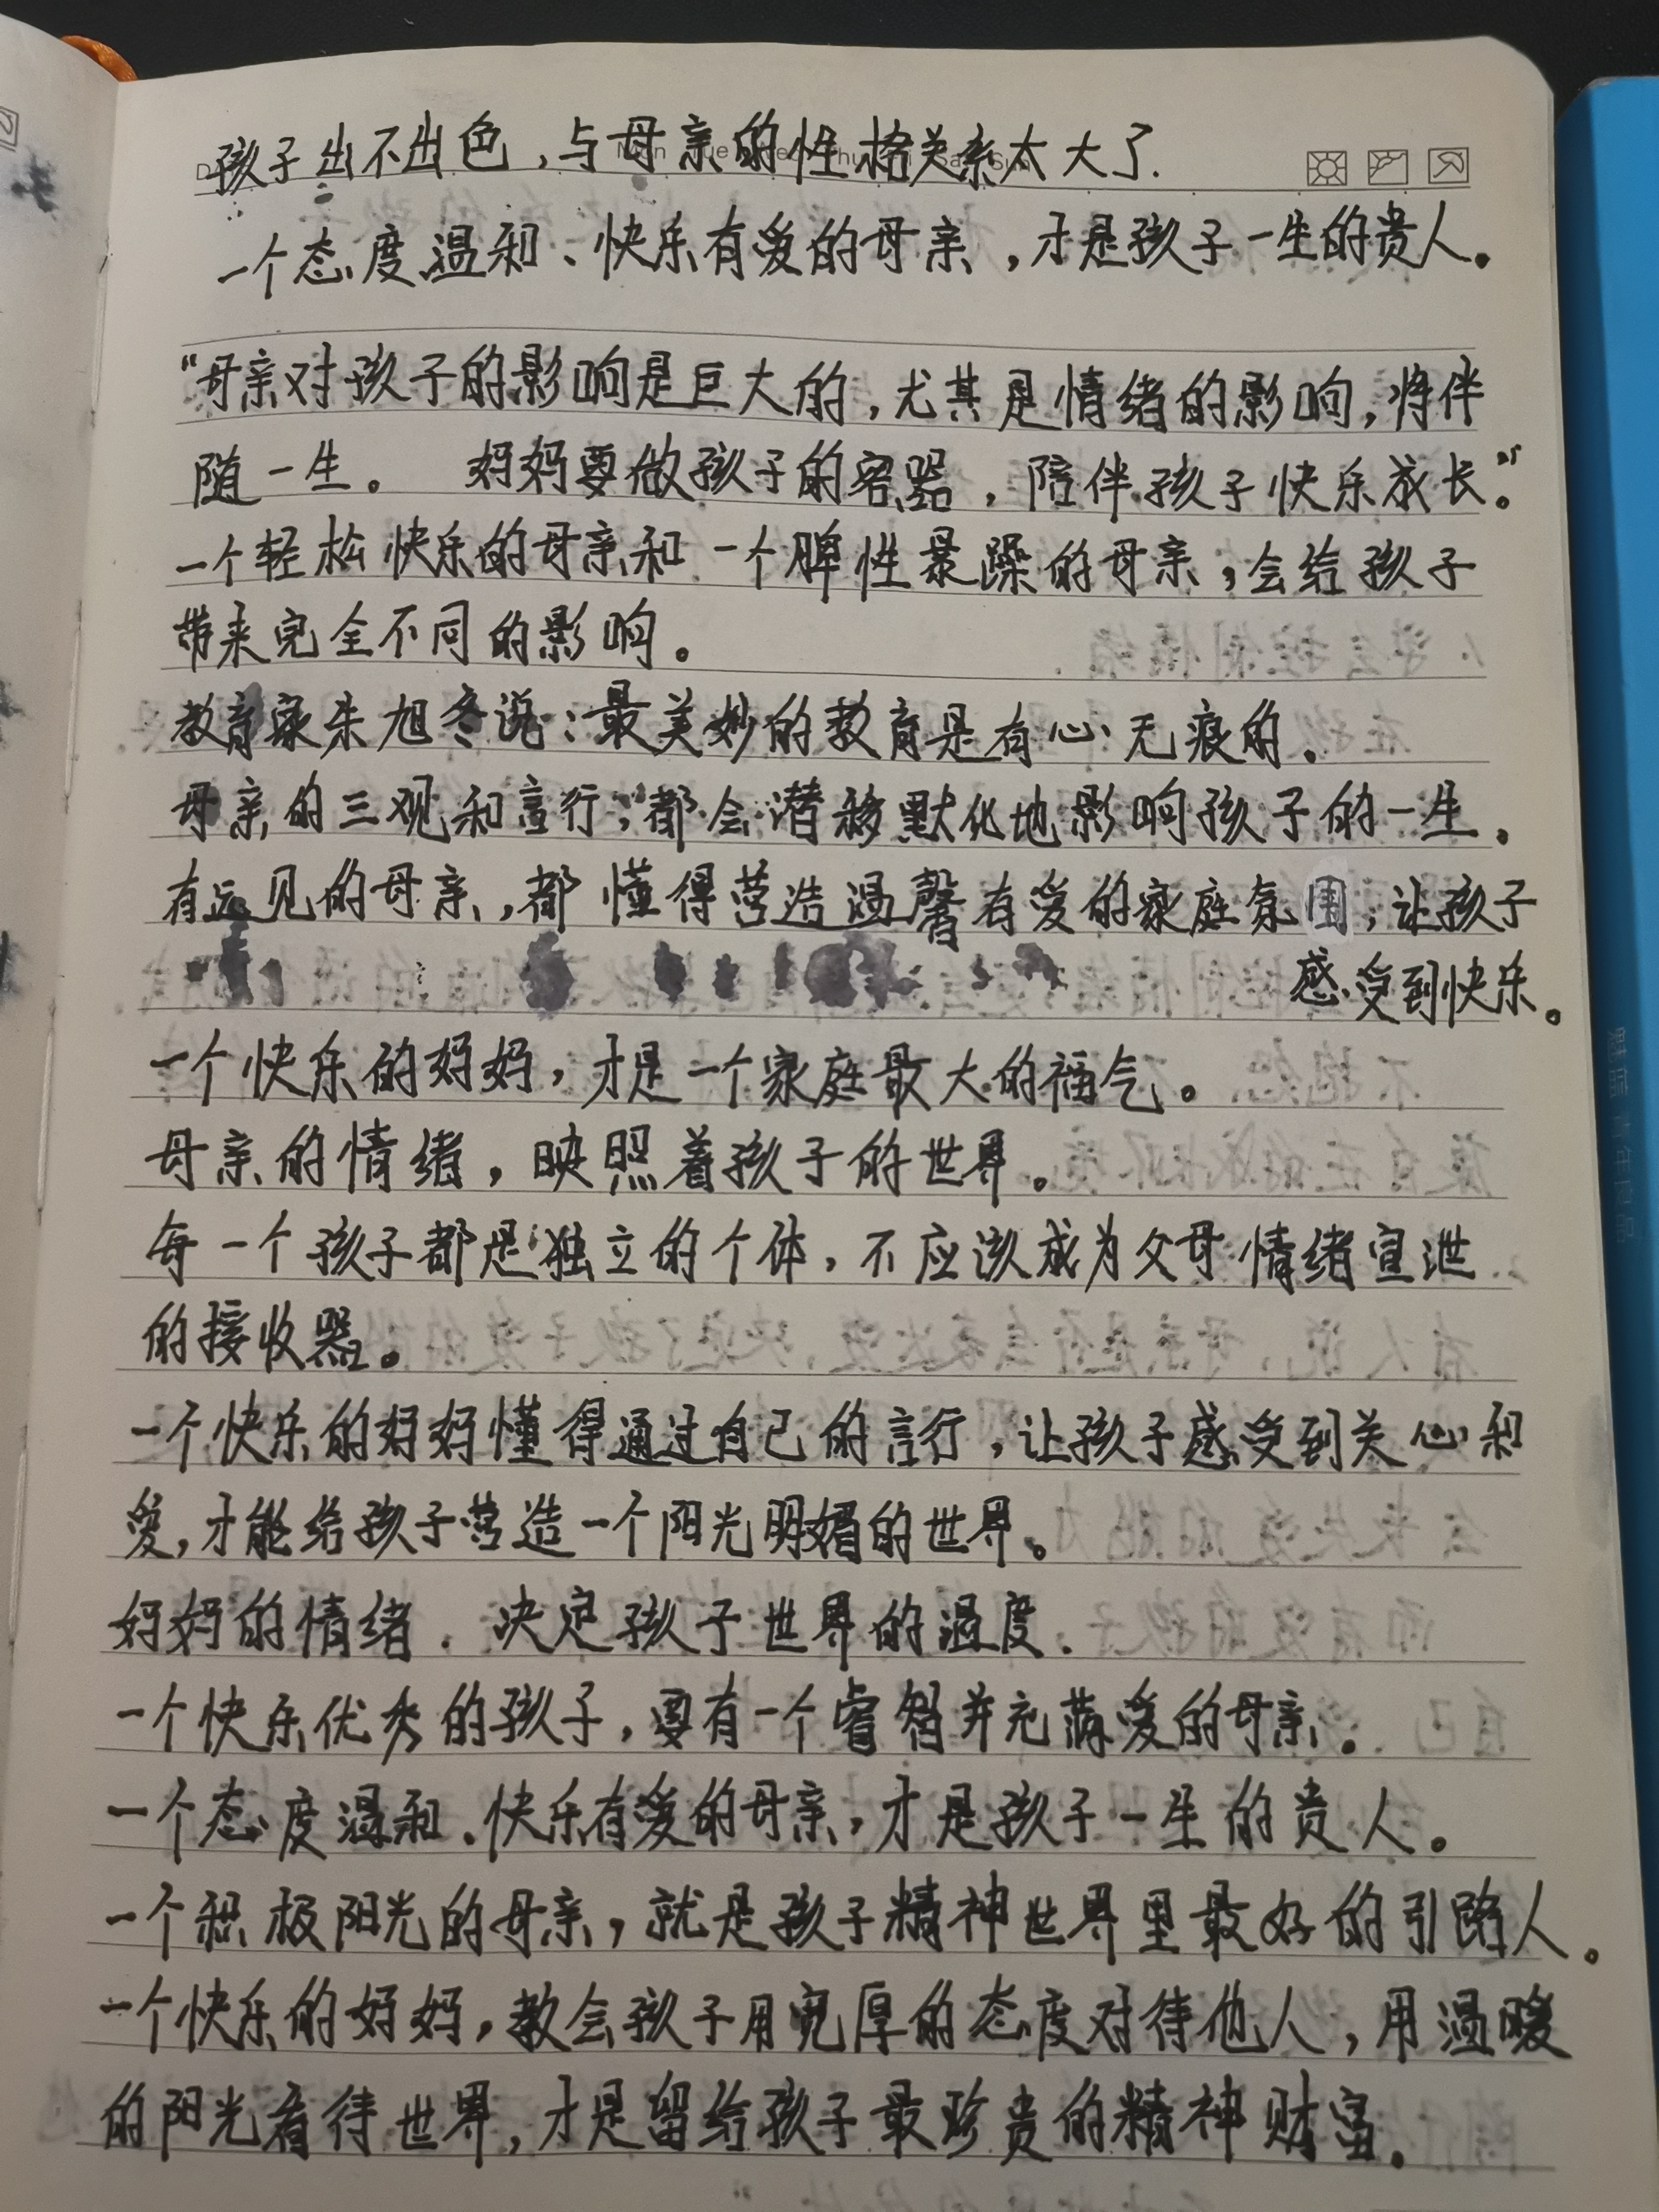 孩子出不出色，与母亲的性格关系太大了.
一个态度温和、快乐有爱的母亲，才是孩子一生的贵人。
“母亲对孩子的影响是巨大的，尤其是情绪的影响，将伴
随一生。 妈妈要做孩子的容器，陪伴孩子快乐成长。”
一个轻松快乐的母亲和一个脾性暴躁的母亲，会给孩子
带来完全不同的影响。
教育家朱旭冬说：最美妙的教育是有心无痕的.
母亲的三观和言行，都会潜移默化地影响孩子的一生.
有远见的母亲，都懂得营造温馨有爱的家庭氛围，让孩子
感受到快乐。
一个快乐的妈妈，才是一个家庭最大的福气。
母亲的情绪，映照着孩子的世界。
每一个孩子都是独立的个体，不应该成为父母情绪宣泄
的接收器。
一个快乐的妈妈懂得通过自己的言行，让孩子感受到关心和
爱，才能给孩子营造一个阳光明媚的世界。
妈妈的情绪.决定孩子世界的温度.
一个快乐优秀的孩子，要有一个睿智并充满爱的母亲。
一个态度温和.快乐有爱的母亲，才是孩子一生的贵人。
一个积极阳光的母亲，就是孩子精神世界里最好的引路人。
一个快乐的妈妈，教会孩子用宽厚的态度对待他人，用温暖
的阳光看待世界，才是留给孩子最珍贵的精神财富。